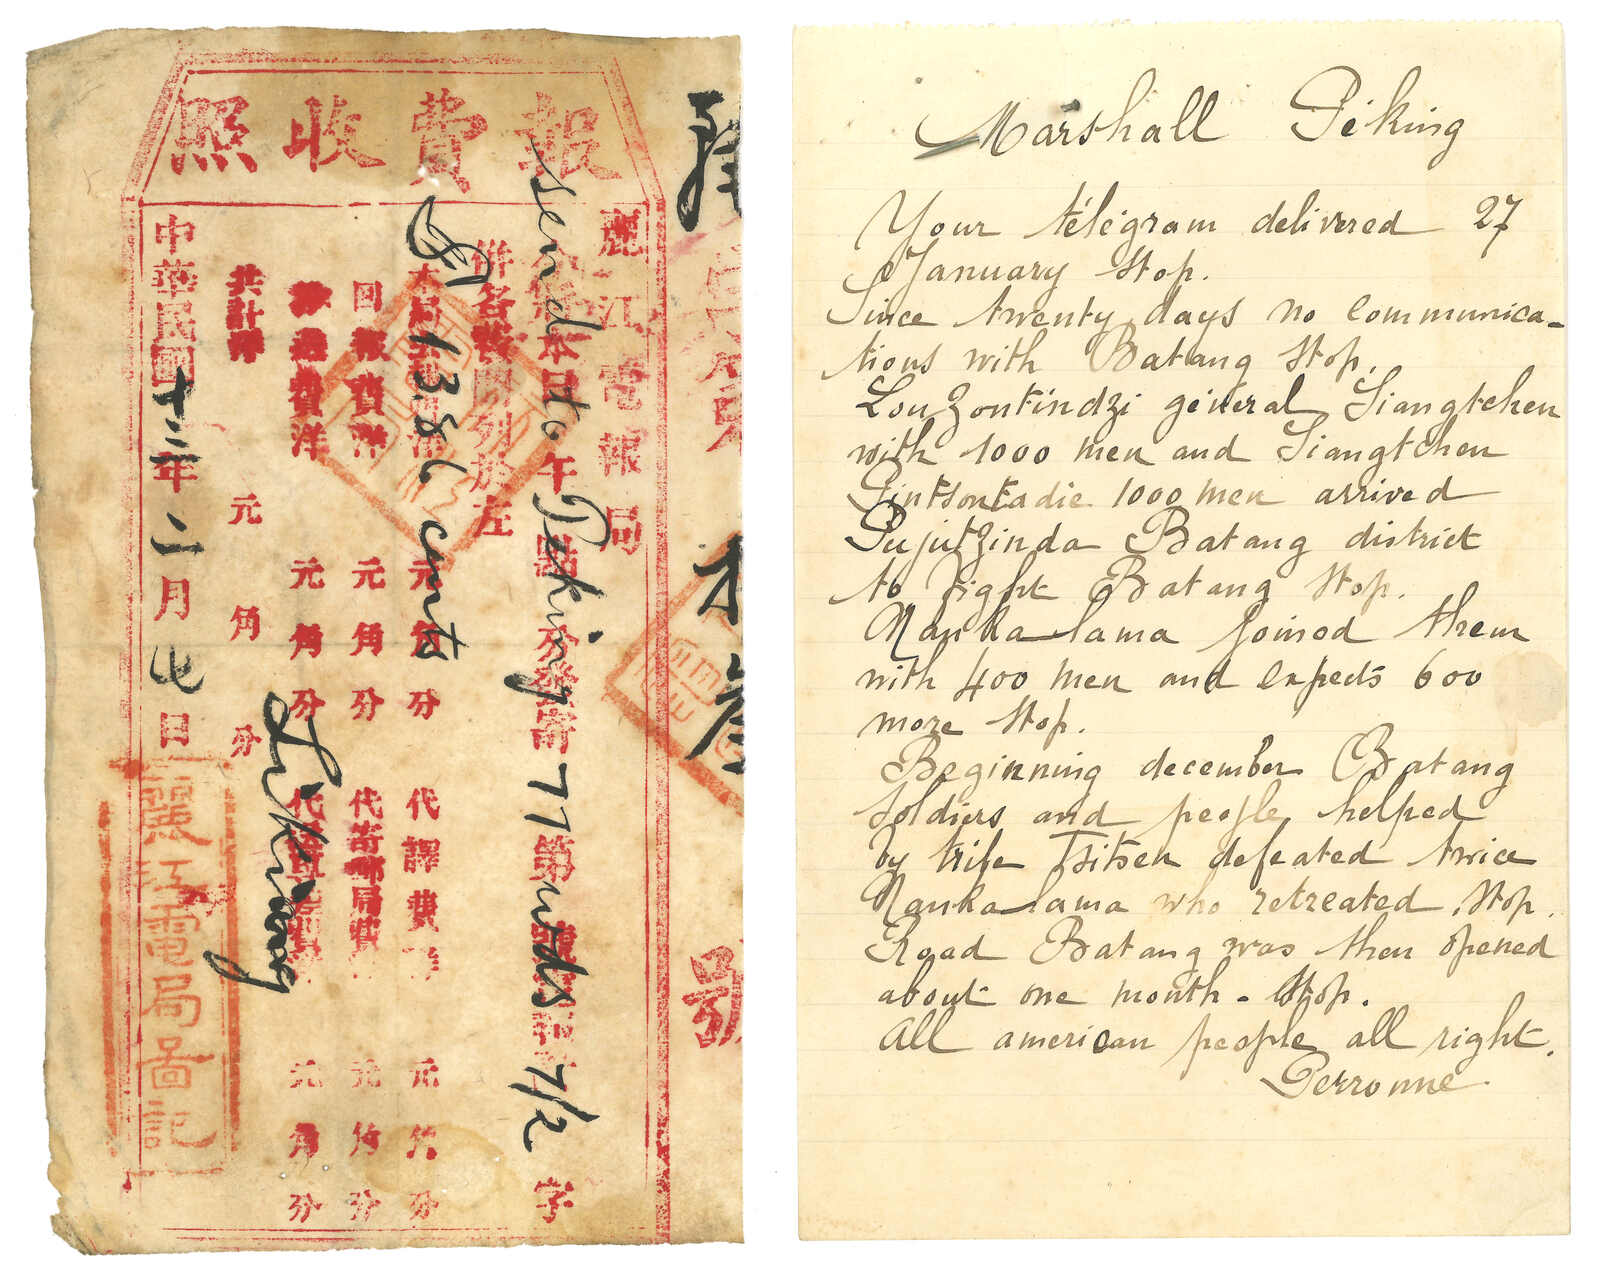 報費收照
麗江電報局
send to Peking 77 wds 7/2
字
併各費開列於左
$ 13.86 cents
元角分
代譯費洋
元角分
回報費洋
元角分
代寄郵局費
元角分
費洋
元角分
元角分
共計洋
元角分
中華民國十三年二月七日
麗江電局圖記
號
Marshall Péking
Your télégram delivered 27
January Stop.
Since twenty days no communica-
tions with Batang Stop.
Lou Zontindzi général Siangtchen
with 1000 men and Siangtchen
Pintsontadie 1000 men arrived
Pujutzinda Batang district
to fight Batang Stop.
Nanka lama joined them
with 400 men and expects 600
more Stop.
Beginning december Batang
soldiers and people helped
by tribe Tsitsen defeated twice
Nanka lama who retreated. Stop.
Road Batang was then opened
about one month - Stop.
All american people all right.
Perronne.